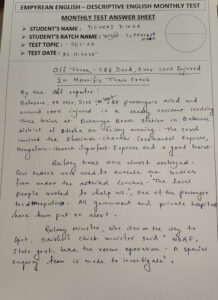 EMPYREAN ENGLISH – DESCRIPTIVE ENGLISH MONTHLY TEST
MONTHLY TEST ANSWER SHEET
➢ STUDENT'S NAME :
➢ STUDENT'S BATCH NAME : CLERKSHIP
➢ TEST TOPIC : SET-07
➢ TEST DATE :
Off Track, 288 Dead, Over 1000 Injured
In Horrific Train Crash
By the Off reporter:
Balasore, 288 passengers died and
around 1000 injured in a deadly accident involving
three trains at Bahanaga Bazar station in Balasore
district of Odisha on Friday evening. The crash
involved the Shalimar-Chennai Coromandel Express,
Bengaluru-Howrah Superfast Express and a goods train.
Railway tracks were almost destroyed.
Gas cutters were used to evacuate the bodies
from under the derailed coaches. "The local
people rushed to help us", one of the passenger
All government and private hospitals
have been put on alert.
Railway minister, who was on the way to
spot. Odisha's chief minister said "NDRF,
State govt. the rescue operation. A special
enquiry team is made to investigate".